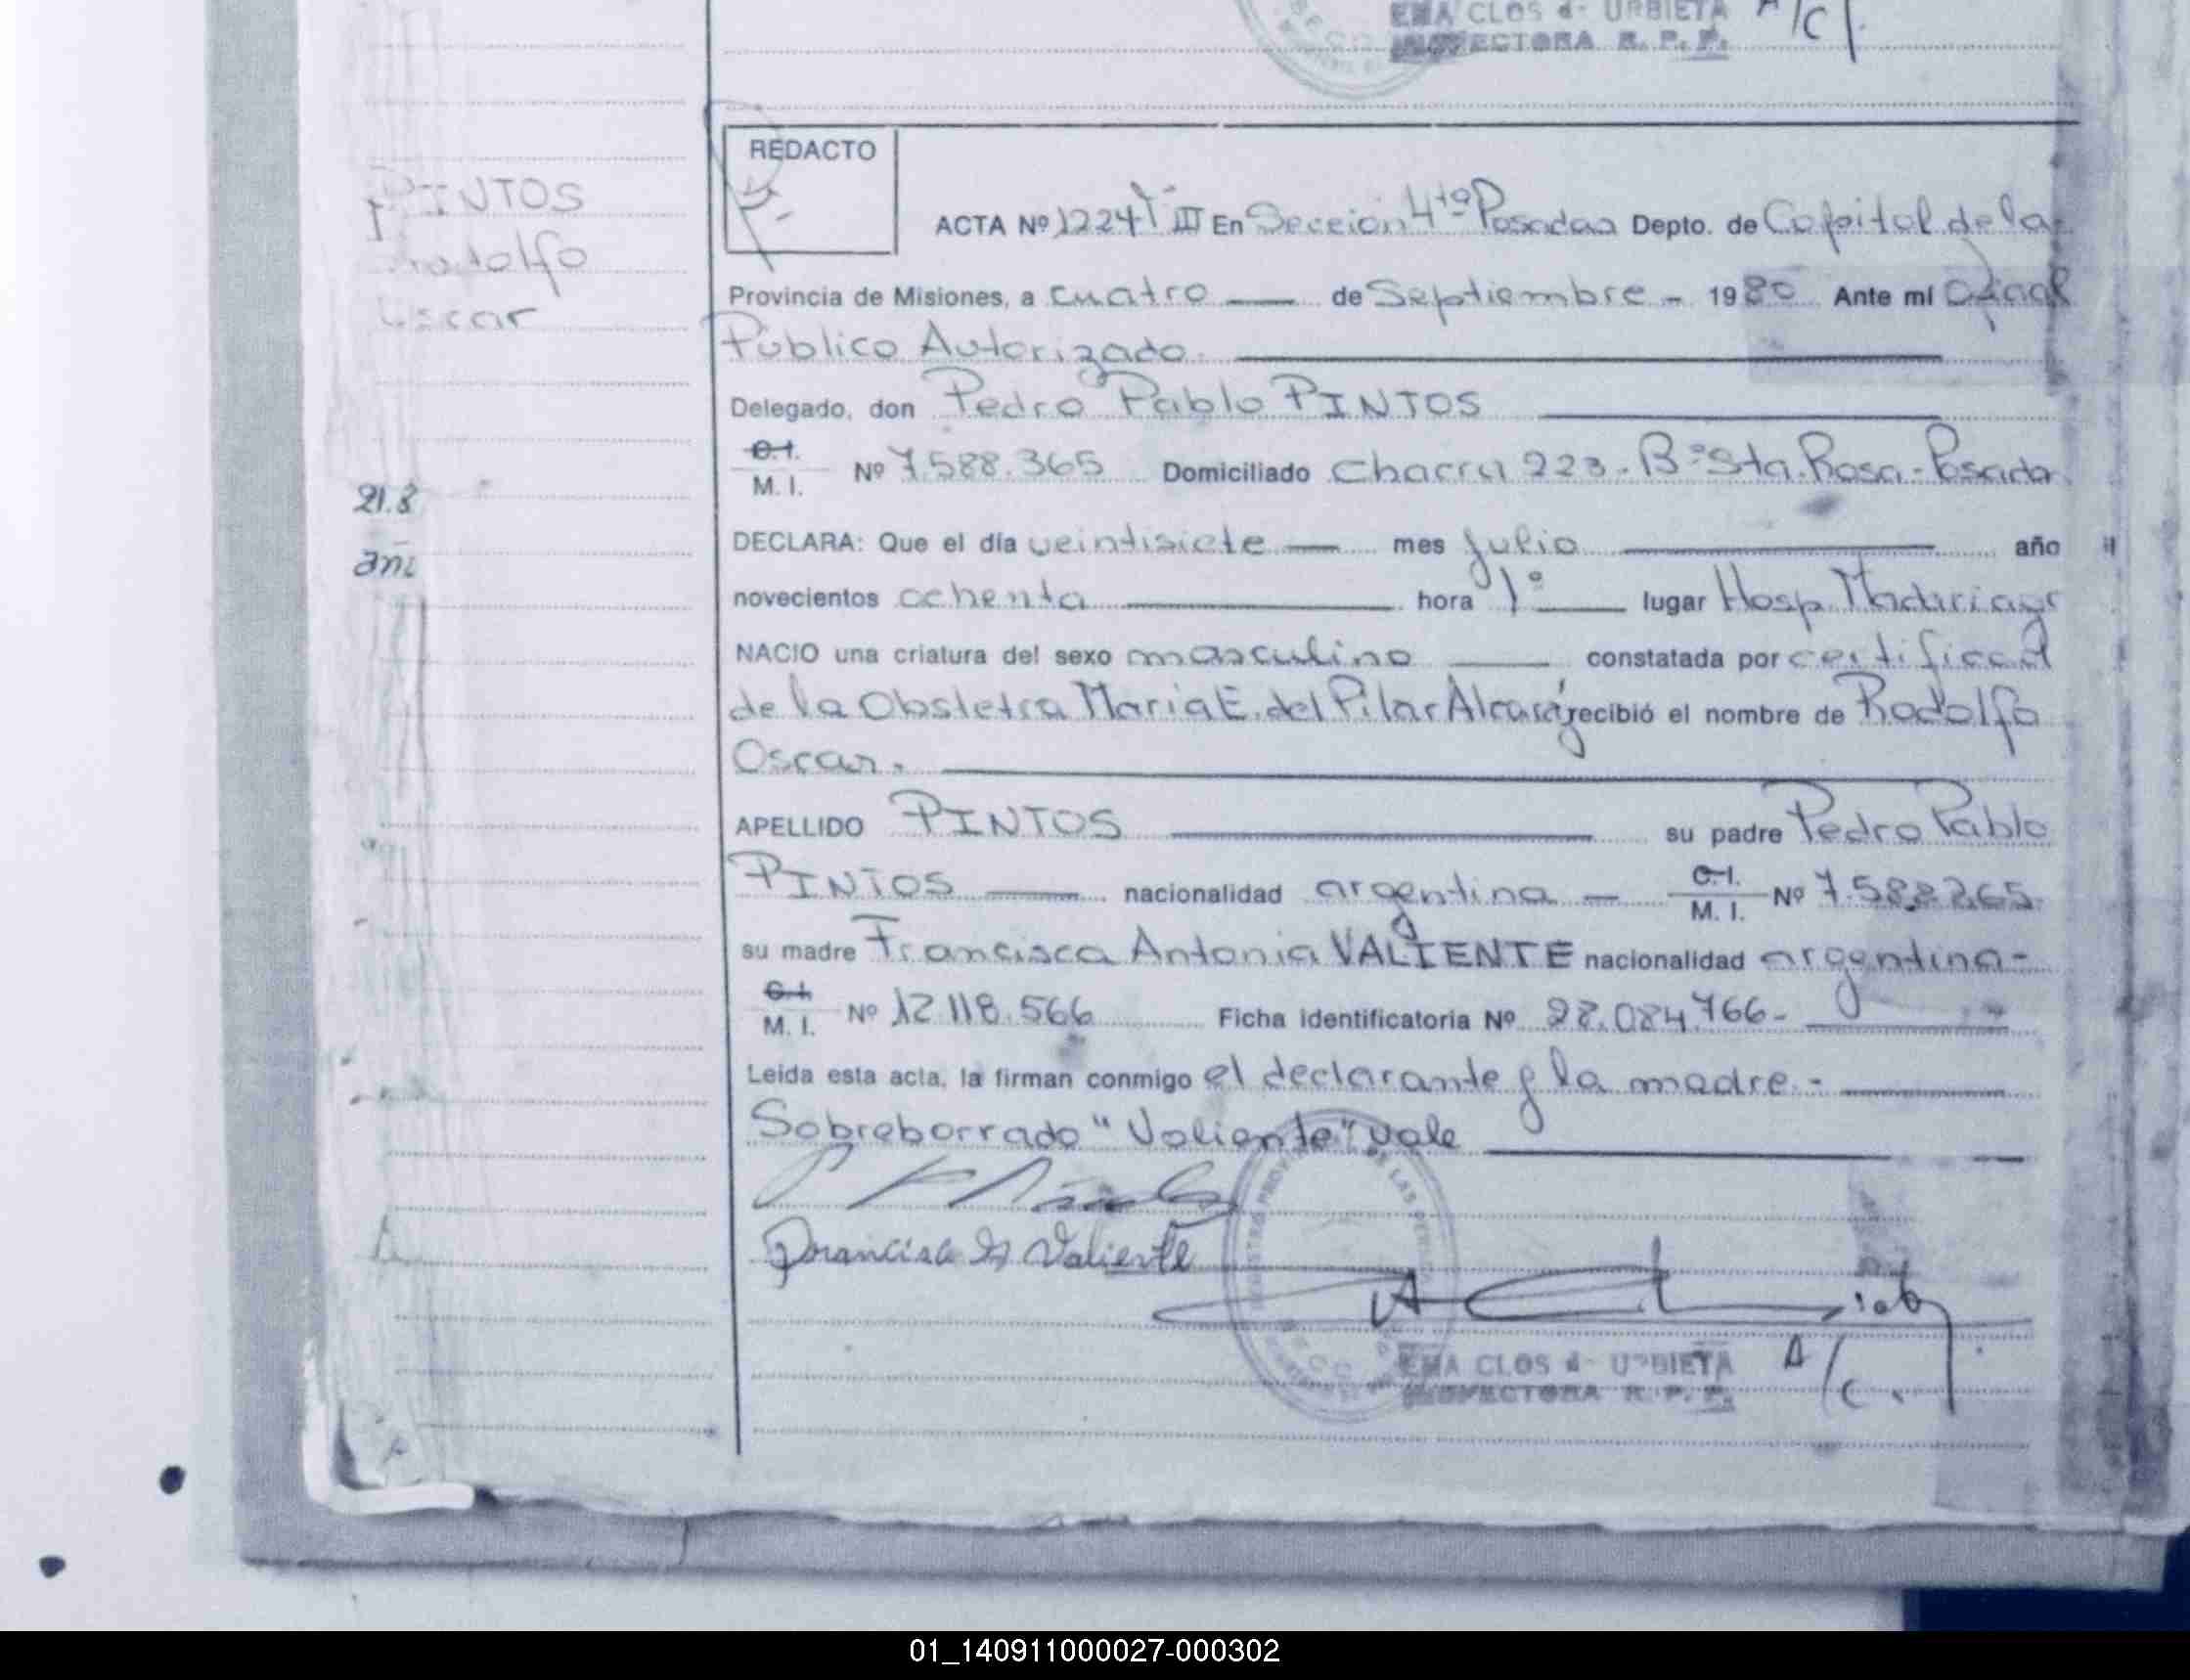 EMA CLOS d- URBIETA A/C.
INSPECTORA R. P. P.
REDACTO
PINTOS
Rodolfo
Oscar
21.8
ACTA Nº 1224 T III En Sección 4ta Posadas Depto. de Capital de la
Provincia de Misiones, a cuatro de Septiembre - 1980 Ante mí Oficial
Público Autorizado.
Delegado, don Pedro Pablo PINTOS
C.I.
M. I. Nº 7.588.365 Domiciliado Chacra 223. Bº Sta. Rosa - Posadas
DECLARA: Que el día veintisiete mes Julio año
novecientos ochenta hora 1º lugar Hosp. Madariaga
NACIO una criatura del sexo masculino constatada por certificad
de la Obstetra Maria E. del Pilar Alcaráz recibió el nombre de Rodolfo
Oscar.
APELLIDO PINTOS su padre Pedro Pablo
PINTOS nacionalidad argentina C.I.
M. I. Nº 7.588.265.
su madre Francisca Antonia VALIENTE nacionalidad argentina-
C.I.
M. I. Nº 12.118.566 Ficha identificatoria Nº 28.084.766-
Leída esta acta, la firman conmigo el declarante y la madre.-
Sobreborrado "Valiente" vale
Francisca A Valiente
EMA CLOS d- URBIETA A/C.
INSPECTORA R. P. P.
01_140911000027-000302